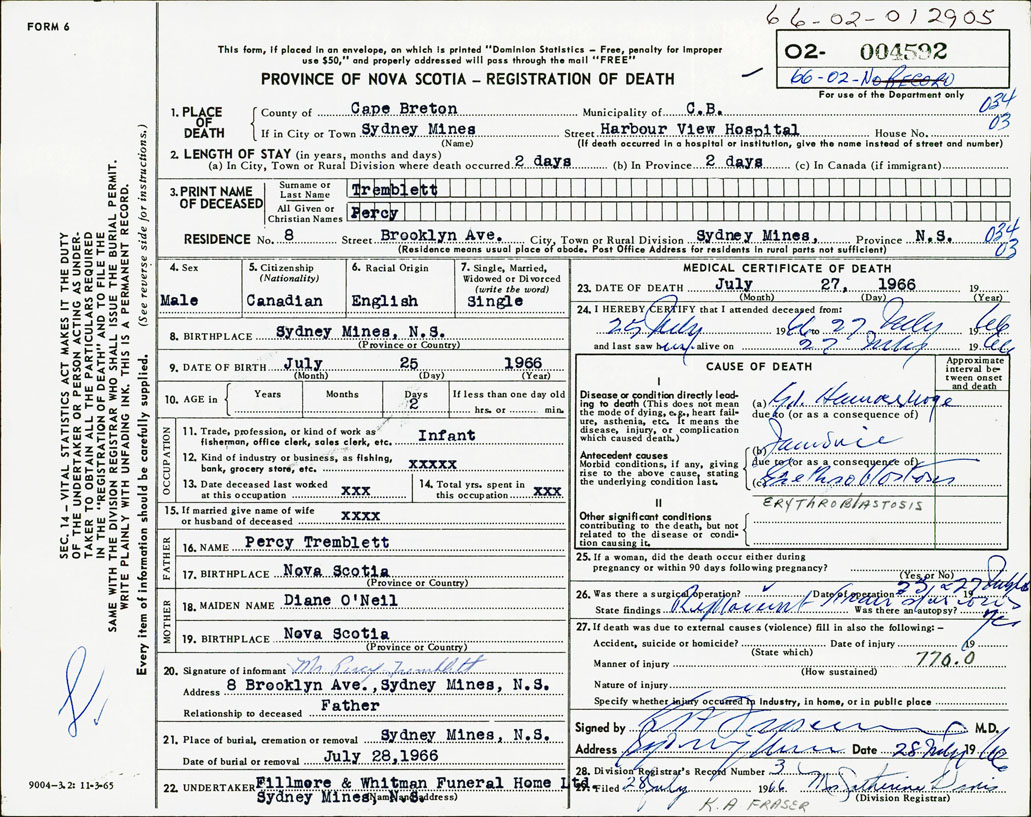 FORM 6
66-02-012905
This form, if placed in an envelope, on which is printed "Dominion Statistics – Free, penalty for improper
use $50," and properly addressed will pass through the mail "FREE"
PROVINCE OF NOVA SCOTIA – REGISTRATION OF DEATH
02- 004592
66-02-No RECORD
For use of the Department only
SEC. 14 – VITAL STATISTICS ACT MAKES IT THE DUTY
OF THE UNDERTAKER OR PERSON ACTING AS UNDER-
TAKER TO OBTAIN ALL THE PARTICULARS REQUIRED
IN THE "REGISTRATION OF DEATH" AND TO FILE THE
SAME WITH THE DIVISION REGISTRAR WHO SHALL ISSUE THE BURIAL PERMIT.
WRITE PLAINLY WITH UNFADING INK. THIS IS A PERMANENT RECORD.
Every item of information should be carefully supplied. (See reverse side for instructions.)
1. PLACE OF DEATH
County of Cape Breton Municipality of C.B. 034
If in City or Town Sydney Mines Street Harbour View Hospital House No. 03
(Name) (If death occurred in a hospital or institution, give the name instead of street and number)
2. LENGTH OF STAY (in years, months and days)
(a) In City, Town or Rural Division where death occurred 2 days (b) In Province 2 days (c) In Canada (if immigrant)
3. PRINT NAME OF DECEASED
Surname or Last Name Tremblett
All Given or Christian Names Percy
RESIDENCE No. 8 Street Brooklyn Ave. City, Town or Rural Division Sydney Mines, Province N.S. 034 03
(Residence means usual place of abode. Post Office Address for residents in rural parts not sufficient)
4. Sex
Male
5. Citizenship (Nationality)
Canadian
6. Racial Origin
English
7. Single, Married, Widowed or Divorced (write the word)
Single
8. BIRTHPLACE Sydney Mines, N.S.
(Province or Country)
9. DATE OF BIRTH July 25 1966
(Month) (Day) (Year)
10. AGE in Years Months Days If less than one day old
2 hrs. or min.
OCCUPATION
11. Trade, profession, or kind of work as
fisherman, office clerk, sales clerk, etc. Infant
12. Kind of industry or business, as fishing,
bank, grocery store, etc. XXXXX
13. Date deceased last worked
at this occupation XXX
14. Total yrs. spent in
this occupation XXX
15. If married give name of wife
or husband of deceased XXXX
FATHER
16. NAME Percy Tremblett
17. BIRTHPLACE Nova Scotia
(Province or Country)
MOTHER
18. MAIDEN NAME Diane O'Neil
19. BIRTHPLACE Nova Scotia
(Province or Country)
20. Signature of informant Mr. Percy Tremblett
Address 8 Brooklyn Ave., Sydney Mines, N.S.
Relationship to deceased Father
21. Place of burial, cremation or removal Sydney Mines, N.S.
Date of burial or removal July 28, 1966
22. UNDERTAKER Fillmore & Whitman Funeral Home Ltd
Sydney Mines, N.S.
(Name and address)
9004-3.2: 11-3-65
MEDICAL CERTIFICATE OF DEATH
23. DATE OF DEATH July 27, 1966 19
(Month) (Day) (Year)
24. I HEREBY CERTIFY that I attended deceased from:
25 July 1966 to 27 July 1966
and last saw him alive on 27 July 1966
CAUSE OF DEATH
Approximate interval between onset and death
I
Disease or condition directly lead-
ing to death (This does not mean
the mode of dying, e.g., heart fail-
ure, asthenia, etc. It means the
disease, injury, or complication
which caused death.)
(a) G.I. Hemorrhage
due to (or as a consequence of)
Antecedent causes
Morbid conditions, if any, giving
rise to the above cause, stating
the underlying condition last.
(b) Jaundice
due to (or as a consequence of)
(c) Erythroblastosis
ERYTHROBLASTOSIS
II
Other significant conditions
contributing to the death, but not
related to the disease or condi-
tion causing it.
25. If a woman, did the death occur either during
pregnancy or within 90 days following pregnancy?
(Yes or No)
26. Was there a surgical operation? Date of operation 19
State findings Replacement transfusions Was there an autopsy? Yes
27. If death was due to external causes (violence) fill in also the following: –
Accident, suicide or homicide? Date of injury 19
(State which) 770.0
Manner of injury
(How sustained)
Nature of injury
Specify whether injury occurred in industry, in home, or in public place
Signed by M.D.
Address Sydney Mines Date 28 July 1966
28. Division Registrar's Record Number 3
29. Filed 28 July 1966 Mrs Catherine Davis
(Division Registrar)
K.A FRASER